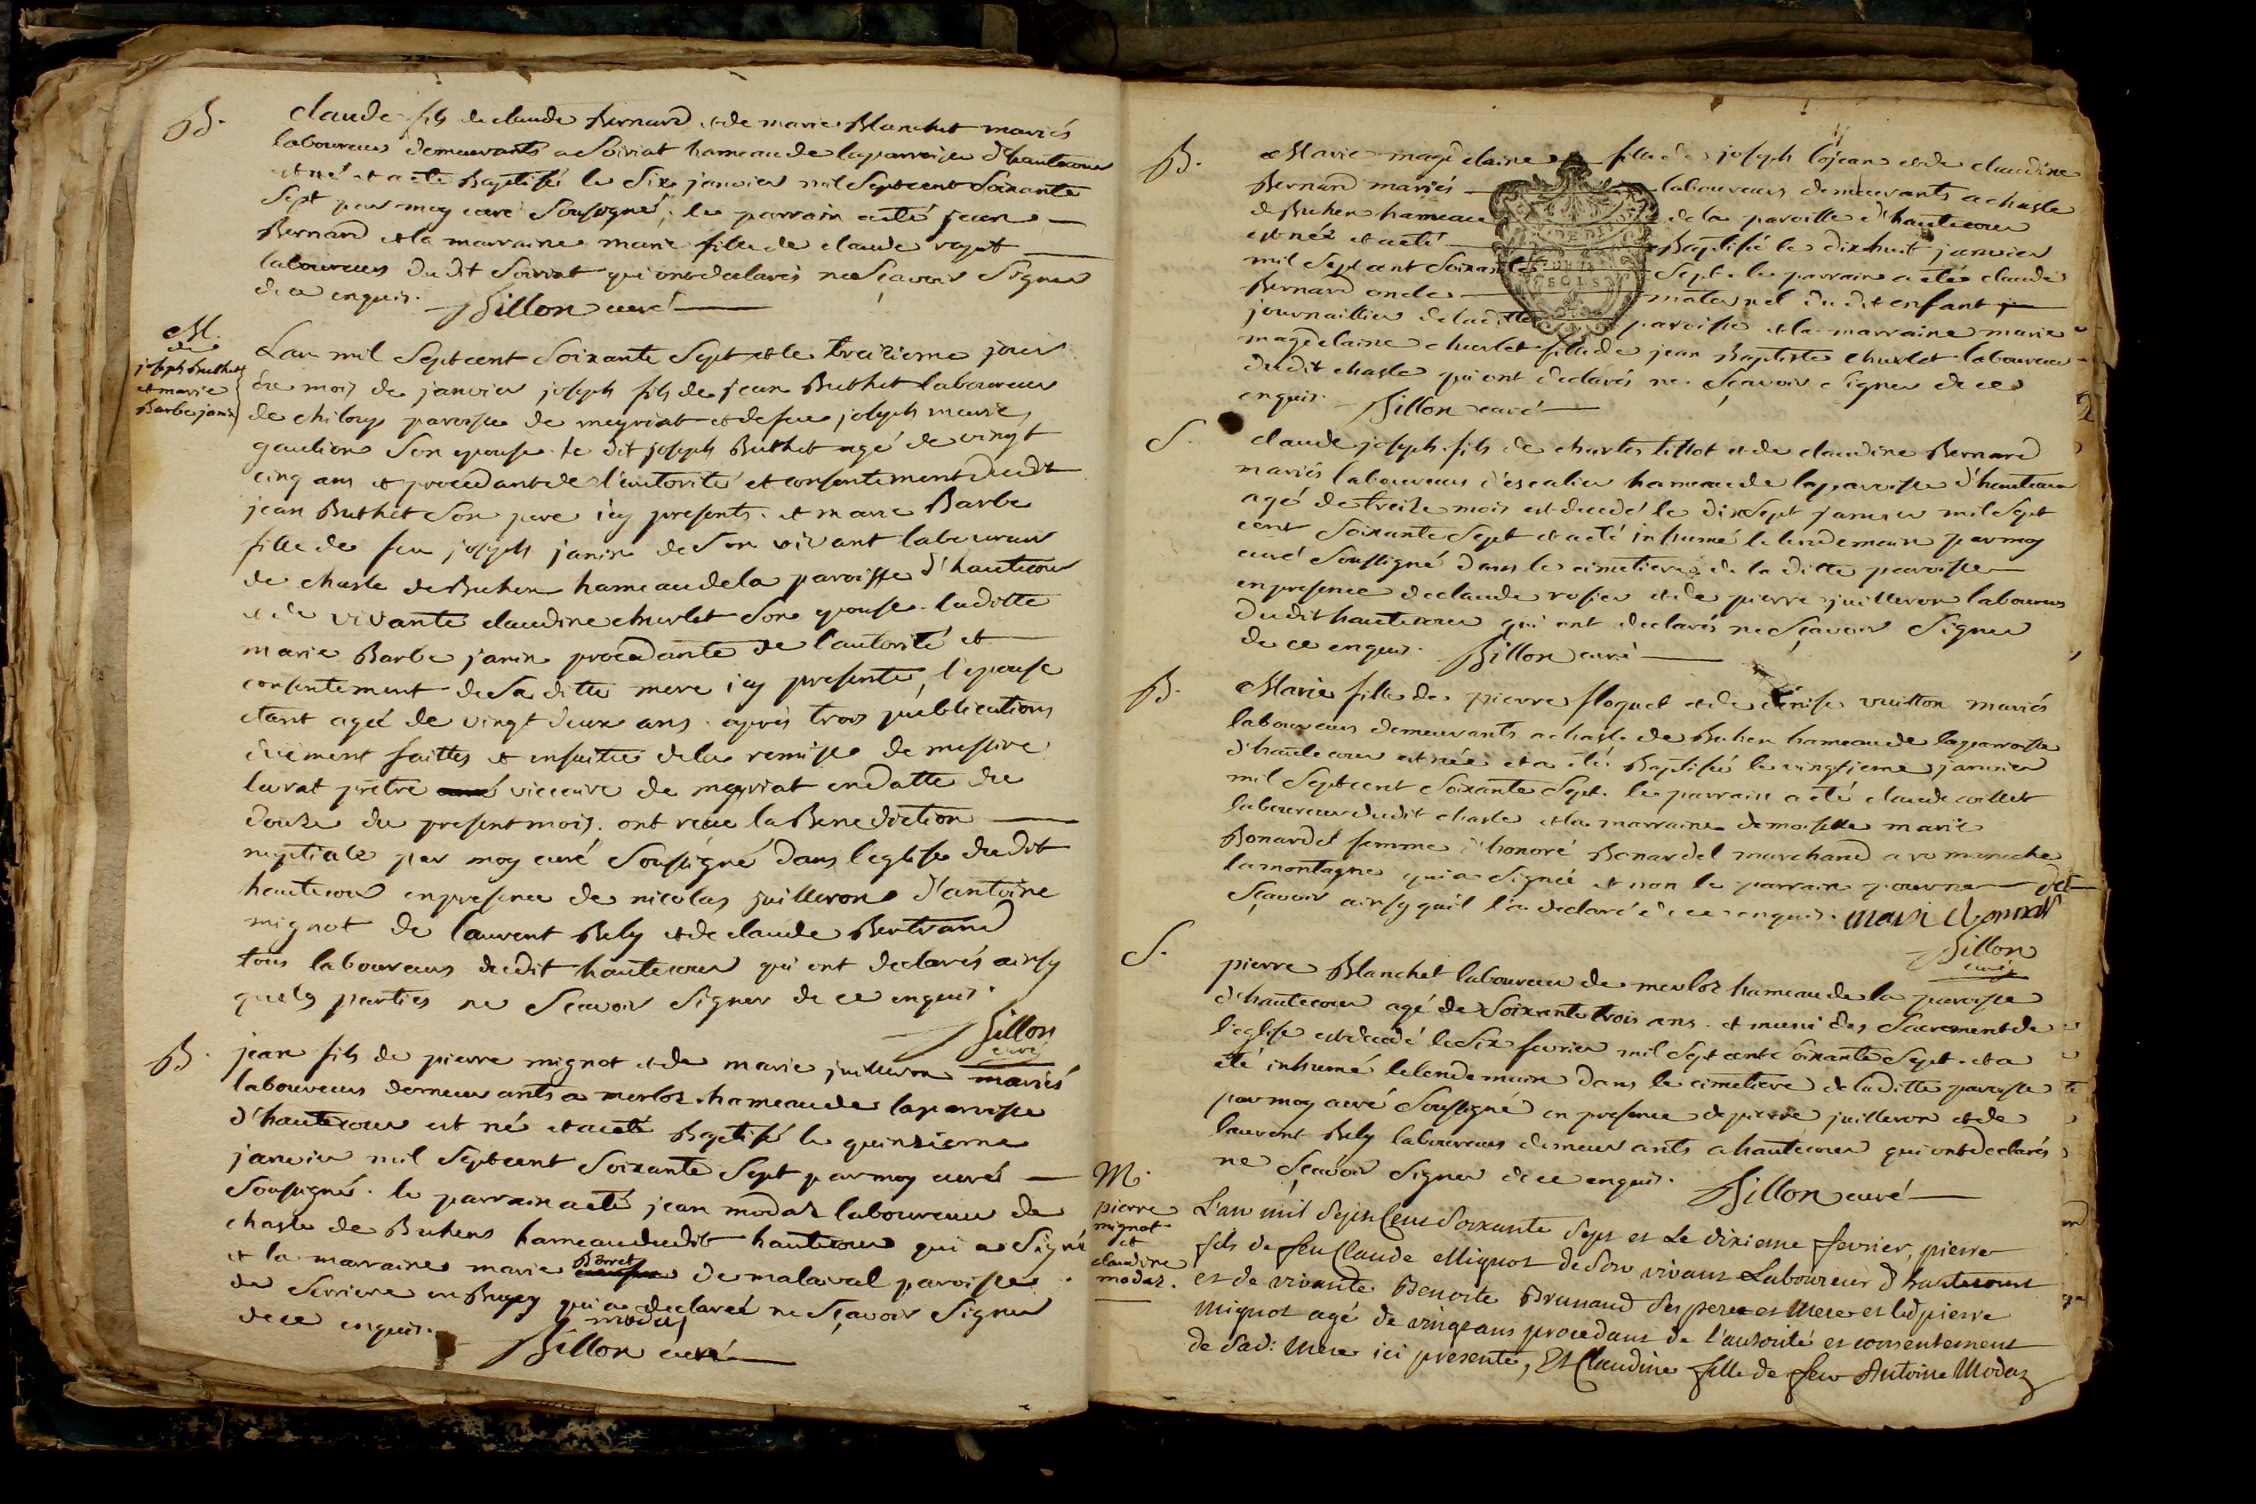 B.
claude fils de claude Bernard et de marie Blanchet mariés
laboureurs demeurants a Soiriat hameau de la parroisse d'hautecour
est né et a eté Baptisé le Six janvier mil Sept cent Soixante
Sept par moy curé Soussigné, le parrain a eté jean
Bernard et la marraine marie fille de claude
laboureurs du dit Soiriat qui ont declarés ne Sçavoir Signer
de ce enquis. Billon curé
M.
de
joseph Buthet
et marie
Barbe janin
L'an mil Sept cent Soixante Sept et le treizieme jour
du mois de janvier joseph fils de jean Buthet laboureur
de chiloup paroisse de meyriat et de feue joseph marie
gaulion Son epouse. le dit joseph Buthet agé de vingt
cinq ans et procedant de l'autorité et consentement dudit
jean Buthet Son pere icy present. et marie Barbe
fille de feu joseph janin de Son vivant laboureur
de chasle de Buhen hameau de la paroisse d'hautecour
et de vivante claudine churlet Son epouse. laditte
marie Barbe janin procedante de l'autorité et
consentement de Sa ditte mere icy presente, l'epouse
etant agée de vingt deux ans. après trois publications
duement faittes et ensuitte de la remise de messire
lurat prêtre curé viccaire de meyriat en datte du
douze du present mois. ont reçue la Benediction
nuptiale par moy curé Soussigné dans l'eglise dudit
hautecour en presence de nicolas juilleron d'antoine
mignot de laurent Bely et de claude Bertrand
tous laboureurs dudit hautecour qui ont declarés ainsy
que les parties ne Sçavoir Signer de ce enquis.
Billon
curé
B.
jean fils de pierre mignot et de marie juilleron mariés
laboureurs demeurants a merloz hameau de la paroisse
d'hautecour est né et a eté Baptisé le quinzieme
janvier mil Sept cent Soixante Sept par moy curé
Soussigné. le parrain a eté jean modaz laboureur de
chasle de Buhens hameau dudit hautecour qui a Signé
et la marraine marie Borret de malaval paroisse
de Serriere en Bugey qui a declarée ne Sçavoir Signer
de ce enquis. J modas
Billon curé
B.
Marie magdelaine fille de joseph lojean et de claudine
Bernard mariés laboureurs demeurants a chasle
de Buhen hameau de la paroisse d'hautecour
est née et a eté Baptisée le dixhuit janvier
mil Sept cent Soixante Sept. le parrain a eté claude
Bernard oncle maternel du dit enfant
journaillier de laditte paroisse et la marraine marie
magdelaine churlet fille de jean Baptiste churlet laboureur
dudit chasle qui ont declarés ne Sçavoir Signer de ce
enquis. Billon curé
S.
claude joseph fils de charles tillot et de claudine Bernard
mariés laboureurs d'escalier hameau de la paroisse d'hautecour
agé de treize mois est decedé le dixSept janvier mil Sept
cent Soixante Sept et a eté inhumé le lendemain par moy
curé Soussigné dans le cimetiere de la ditte paroisse
en presence de claude rosier et de pierre juilleron laboureurs
dudit hautecour qui ont declarés ne Sçavoir Signer
de ce enquis. Billon curé
B.
Marie fille de pierre floquet et de denise vuitton mariés
laboureurs demeurants a chasle de Buhen hameau de la paroisse
d'hautecour est née et a eté Baptisée le vingtieme janvier
mil Sept cent Soixante Sept. le parrain a eté claude
laboureur dudit chasle et la marraine demoiselle marie
Bonardel femme d'honoré Bonardel marchand a romaneche
la montagne qui a Signée et non le parrain pour ne
Sçavoir ainsy qu'il l'a declaré de ce enquis. marie Bonnardel
Billon
curé
S.
pierre Blanchet laboureur de merloz hameau de la paroisse
d'hautecour agé de Soixante trois ans. et muni des Sacrements de
l'eglise est decedé le Six fevrier mil Sept cent Soixante Sept. et a
eté inhumé le lendemain dans le cimetiere de laditte paroisse
par moy curé Soussigné en presence de pierre juilleron et de
laurent Bely laboureurs demeurants a hautecour qui ont declarés
ne Sçavoir Signer de ce enquis. Billon curé
M.
pierre
mignot
et
claudine
modaz.
L'an mil Sept Cent Soixante Sept et Le dixieme fevrier, pierre
fils de feu Claude Mignot de Son vivant Laboureur d'hautecourt
et de vivante Benoite Brunand Ses pere et Mere et led pierre
Mignot agé de vingt ans procedant de l'autorité et consentement
de Sad: Mere ici presente, Et Claudine fille de feu Antoine Modaz